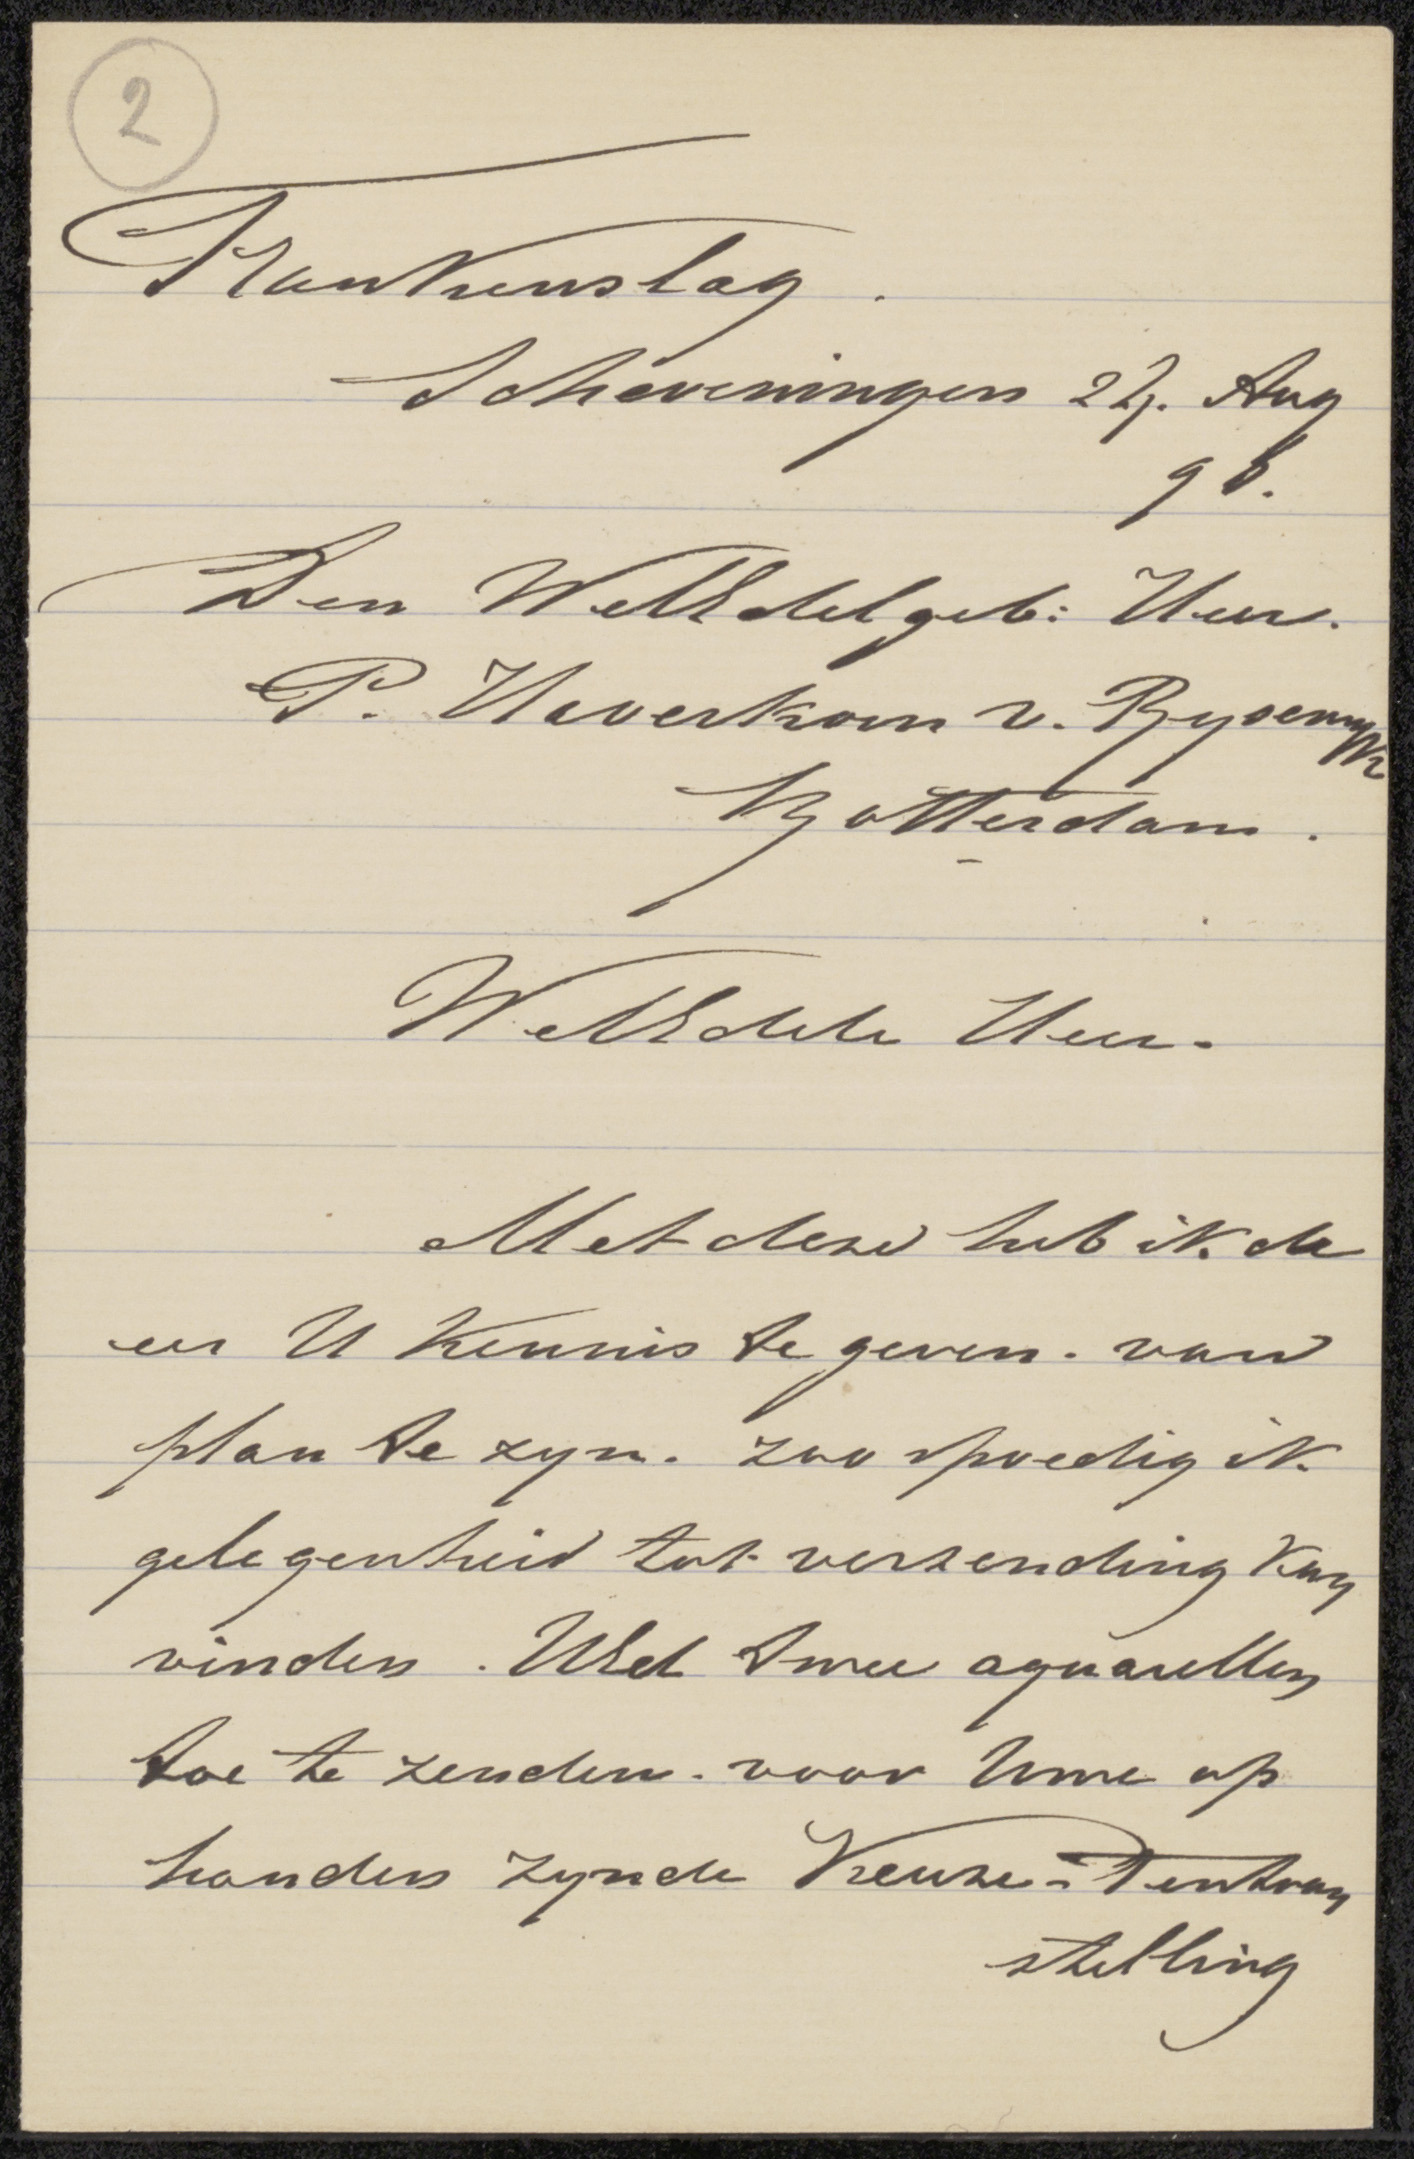 2
Frankenslag.
Scheveningen 24. Aug
98.
Den WelEdelgeb: Heer.
P. Haverkorn v. Rysewyk
Rotterdam.
WelEdele Heer.
Met deze heb ik de
eer U kennis te geven. van
plan te zyn. zoo spoedig ik
gelegenheid tot verzending kan
vinden. UEd twee aquarellen
toe te zenden. voor Uwe op
handen zynde Keuze-Tentoon
stelling